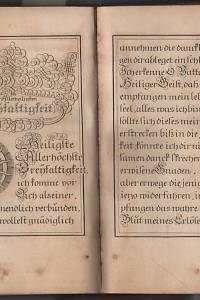 Allerheiligsten
Dreyfaltigkeit.
Heiligste
Allerhöchste
Dreyfaltigkeit,
ich komme vor
Dich als einer,
unendlich verbunden,
wollest gnädiglich
annehmen die danck
gen dir ableget ein schl
Ich erkenne O Vatte
Heiliger Geist, daß
empfangen mein lebe
seel, alles was ich bin
sollte sich dieses mein
erstrecken biß in die
keit, könnte ich dir ni
samen danck sprechen
erwisene Gnaden.
aber erwege die jenig
jezo widerfahren, in
pfangen das wahre
Blut meines Erlöse